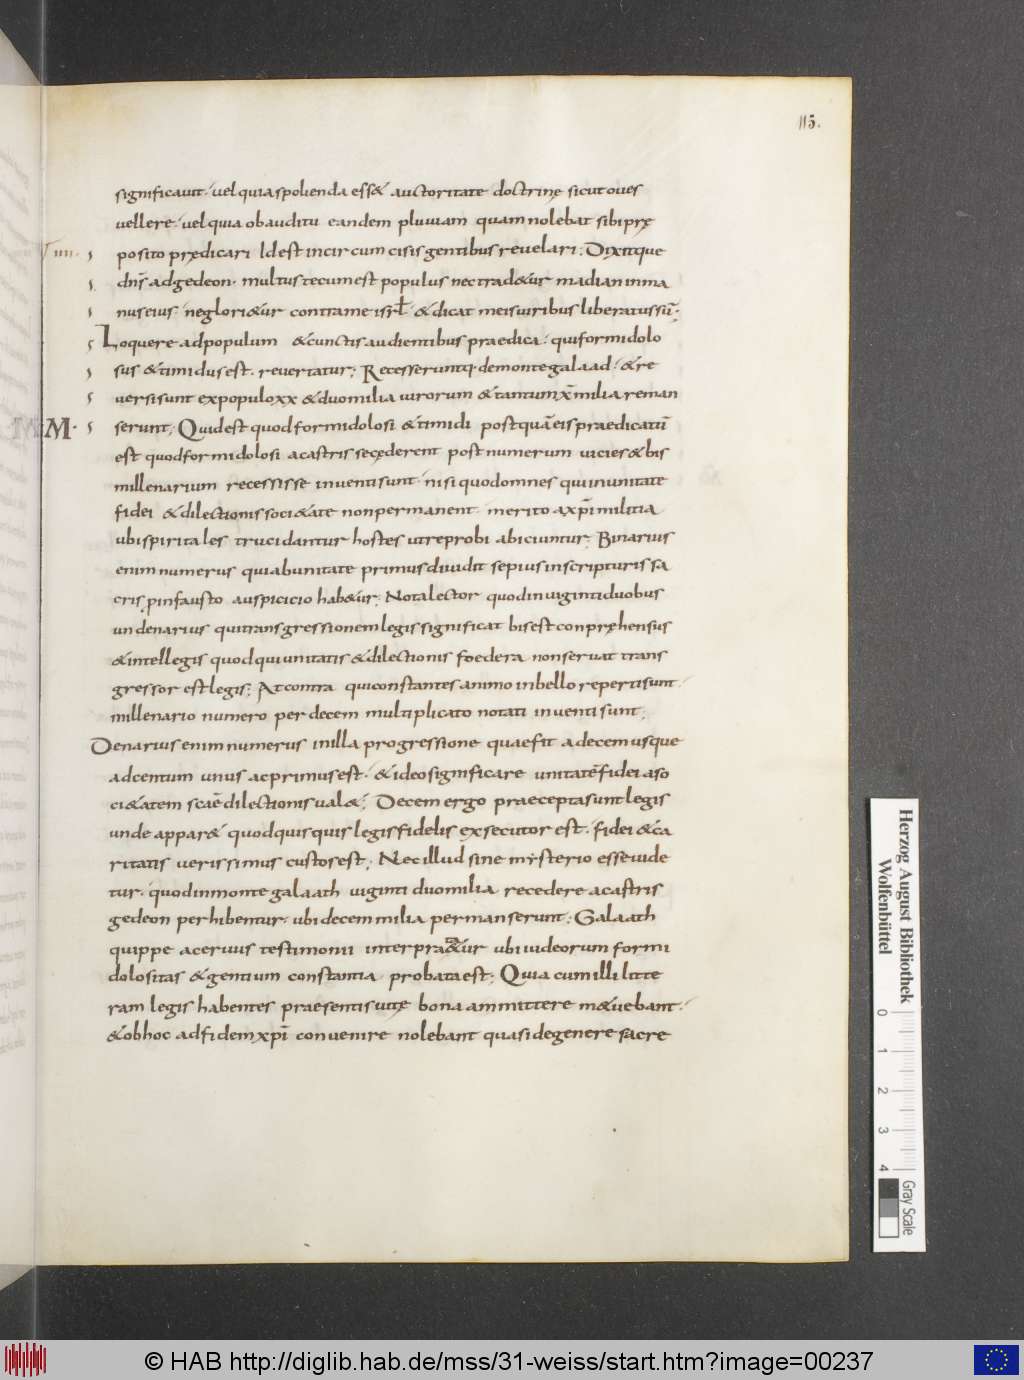 115.
significauit. uel quia spolienda ess& auctoritate doctrinę sicut oues
uellere. uel quia ob auditu eandem pluuiam quam nolebat sibi prę
IIII. posito prędicari Id est in circumcisis gentibus reuelari; Dixitque
dn̄s ad gedeon. multus tecum est populus nec trad&ur madian in ma
nus eius. ne glori&ur contra me isrł. & dicat meis uiribus liberatus sū;
Loquere ad populum & cunctis audientibus praedica. qui formidolo
sus & timidus est. reuertatur; Recesseruntq. de monte galaad. & re
uersi sunt ex populo xx & duo milia uirorum & tantum x̄ milia reman
M. serunt; Quid est quod formidolosi & timidi postquā eis praedicatū
est quod formidolosi a castris secęderent post numerum uicies & bis
millenarium recessisse inuenti sunt. nisi quod omnes qui in unitate
fidei & dilectionis soci&ate non permanent. merito a xp̄i militia
ubi spiritales trucidantur hostes ut reprobi abiciuntur; Binarius
enim numerus qui ab unitate primus diuidit sepius in scripturis sa
cris. p infausto auspicicio hab&ur; Nota lector quod in uiginti duobus
undenarius qui transgressionem legis significat bis est conpręhensus
& intellegis quod qui unitatis & dilectionis foedera non seruat trans
gressor est legis; At contra qui constantes animo in bello reperti sunt.
millenario numero per decem multiplicato notati inuenti sunt;
Denarius enim numerus in illa progressione quae fit a decem usque
ad centum unus ac primus est. & ideo significare unitatē fidei a so
ci&atem scaē dilectionis ual&; Decem ergo praecepta sunt legis
unde appar& quod quisquis legis fidelis exsecutor est. fidei & ca
ritatis uerissimus custos est; Nec illud sine mẏsterio esse uide
tur. quod in monte galaath uiginti duo milia recedere a castris
gedeon perhibentur. ubi decem milia permanserunt; Galaath
quippe aceruus testimonii interpra&ur ubi iudeorum formi
dolositas & gentium constantia probata est; Quia cum illi litte
ram legis habentes praesentis uitę bona ammittere m&uebant.
& ob hoc ad fidem xp̄i conuenire nolebant quasi degenere sacre
Herzog August Bibliothek
Wolfenbüttel
0 1 2 3 4
Gray Scale
© HAB http://diglib.hab.de/mss/31-weiss/start.htm?image=00237